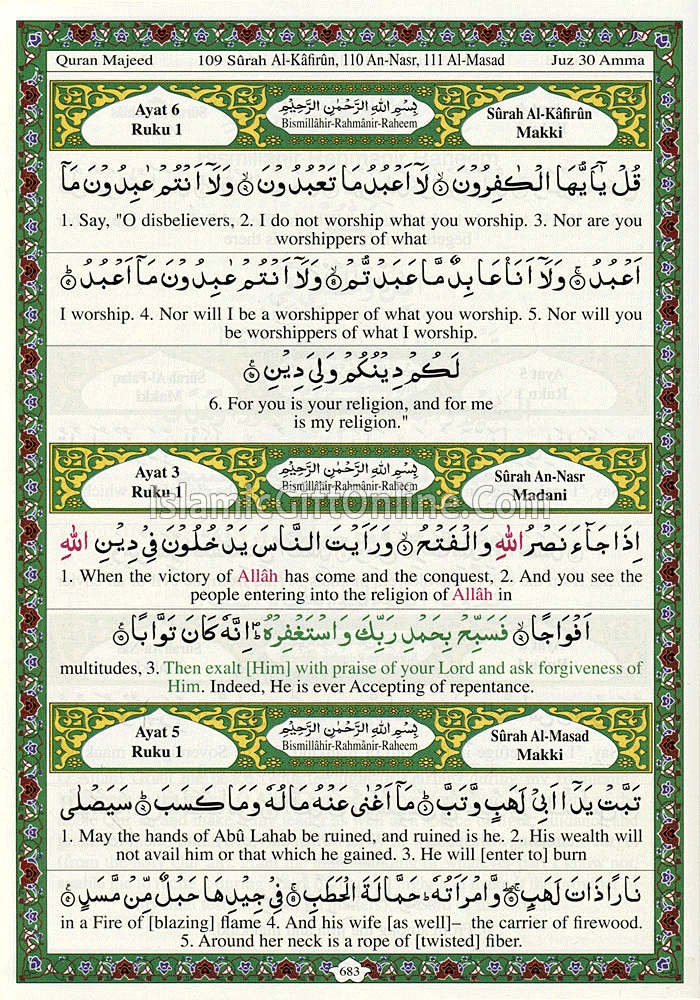 Quran Majeed 109 Sûrah Al-Kâfirûn, 110 An-Nasr, 111 Al-Masad Juz 30 Amma
Ayat 6
Ruku 1
بِسْمِ اللهِ الرَّحْمٰنِ الرَّحِيْمِ
Bismillâhir-Rahmânir-Raheem
Sûrah Al-Kâfirûn
Makki
قُلْ يٰۤاَيُّهَا الْكٰفِرُوْنَ ۙ﴿۱﴾ لَاۤ اَعْبُدُ مَا تَعْبُدُوْنَ ۙ﴿۲﴾ وَلَاۤ اَنْتُمْ عٰبِدُوْنَ مَاۤ
1. Say, "O disbelievers, 2. I do not worship what you worship. 3. Nor are you
worshippers of what
اَعْبُدُ ۚ﴿۳﴾ وَلَاۤ اَنَا عَابِدٌ مَّا عَبَدْتُّمْ ۙ﴿۴﴾ وَلَاۤ اَنْتُمْ عٰبِدُوْنَ مَاۤ اَعْبُدُ ؕ﴿۵﴾
I worship. 4. Nor will I be a worshipper of what you worship. 5. Nor will you
be worshippers of what I worship.
لَكُمْ دِيْنُكُمْ وَلِيَ دِيْنِ ﴿۶﴾
6. For you is your religion, and for me
is my religion."
Ayat 3
Ruku 1
بِسْمِ اللهِ الرَّحْمٰنِ الرَّحِيْمِ
Bismillâhir-Rahmânir-Raheem
Sûrah An-Nasr
Madani
IslamicGiftOnline.Com
اِذَا جَآءَ نَصْرُ اللهِ وَالْفَتْحُ ۙ﴿۱﴾ وَرَاَيْتَ النَّاسَ يَدْخُلُوْنَ فِيْ دِيْنِ اللهِ
1. When the victory of Allâh has come and the conquest, 2. And you see the
people entering into the religion of Allâh in
اَفْوَاجًا ۙ﴿۲﴾ فَسَبِّحْ بِحَمْدِ رَبِّكَ وَاسْتَغْفِرْهُ ؕ اِنَّهٗ كَانَ تَوَّابًا ﴿۳﴾
multitudes, 3. Then exalt [Him] with praise of your Lord and ask forgiveness of
Him. Indeed, He is ever Accepting of repentance.
Ayat 5
Ruku 1
بِسْمِ اللهِ الرَّحْمٰنِ الرَّحِيْمِ
Bismillâhir-Rahmânir-Raheem
Sûrah Al-Masad
Makki
تَبَّتْ يَدَاۤ اَبِيْ لَهَبٍ وَّتَبَّ ؕ﴿۱﴾ مَاۤ اَغْنٰى عَنْهُ مَالُهٗ وَمَا كَسَبَ ؕ﴿۲﴾ سَيَصْلٰى
1. May the hands of Abû Lahab be ruined, and ruined is he. 2. His wealth will
not avail him or that which he gained. 3. He will [enter to] burn
نَارًا ذَاتَ لَهَبٍ ۚۖ﴿۳﴾ وَّامْرَاَتُهٗ ؕ حَمَّالَةَ الْحَطَبِ ۚ﴿۴﴾ فِيْ جِيْدِهَا حَبْلٌ مِّنْ مَّسَدٍ ﴿۵﴾
in a Fire of [blazing] flame 4. And his wife [as well]– the carrier of firewood.
5. Around her neck is a rope of [twisted] fiber.
683